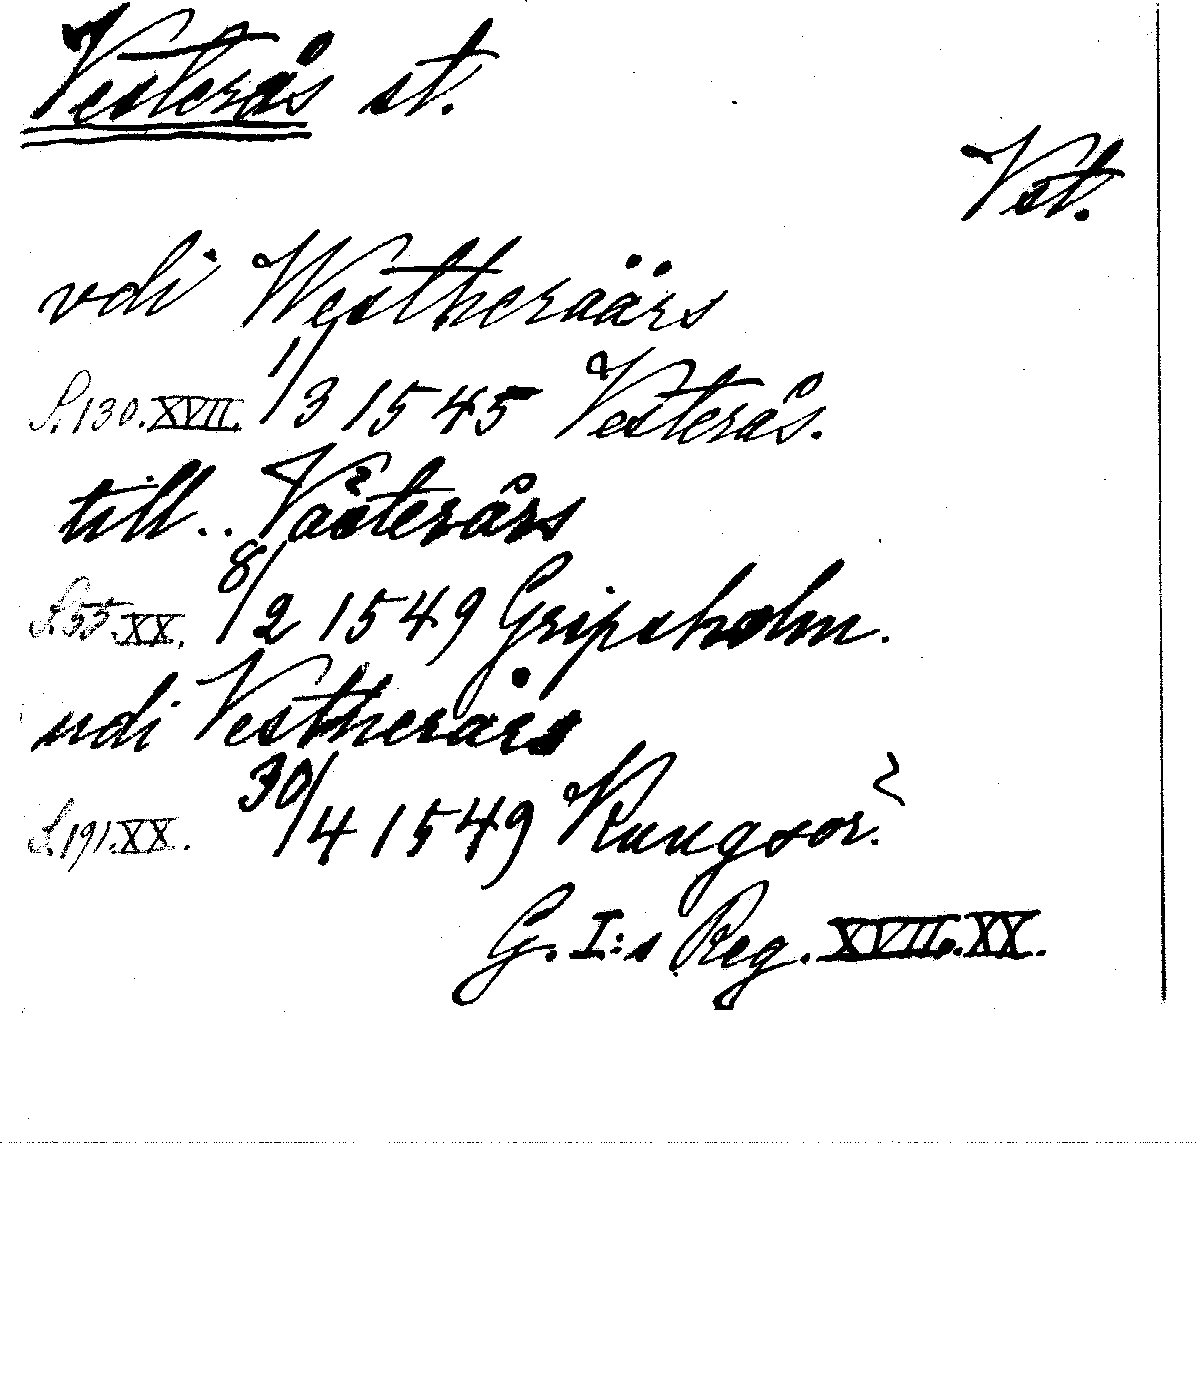 Vesterås st.
Vst.
vdi Westheraärs
S. 130. XVII. 1/3 1545 Vesterås.
till.. Våsterårs
S. 55 XX. 8/2 1549 Gripsholm.
udi Vestherårs
S. 191. XX. 30/4 1549 Kungsör.
G. I:s Reg. XVII. XX.